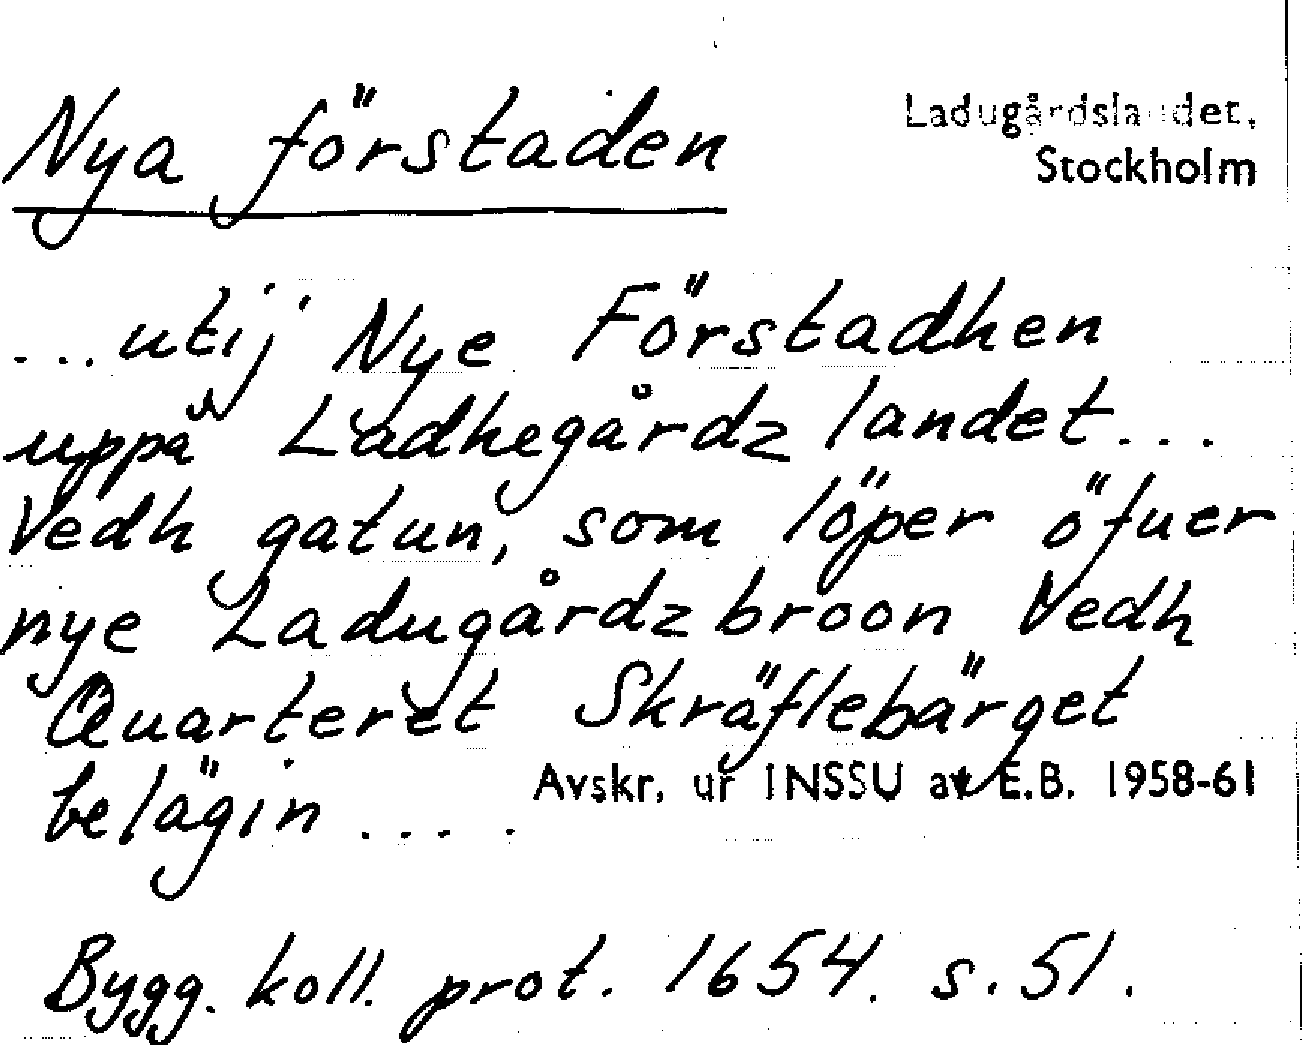 Nya förstaden
Ladugårdslandet,
Stockholm
...utij Nye Förstadhen
uppå Ladhegårdz landet...
Vedh gatun, som löper öfuer
nye Ladugårdzbroon Vedh
Quarteret Skräflebärget
belägin ....
Avskr. ur INSSU av E.B. 1958-61
Bygg. koll. prot. 1654. s. 51.